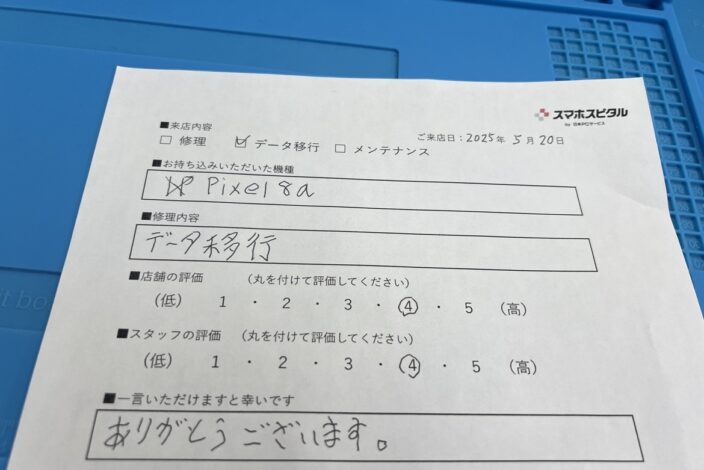 スマホスピタル
by 日本PCサービス
■来店内容
ご来店日：2025年 5月20日
□ 修理 ☑ データ移行 □ メンテナンス
■お持ち込みいただいた機種
Pixel 8a
■修理内容
データ移行
■店舗の評価 （丸を付けて評価してください）
（低） 1 ・ 2 ・ 3 ・ 4 ・ 5 （高）
■スタッフの評価 （丸を付けて評価してください）
（低） 1 ・ 2 ・ 3 ・ 4 ・ 5 （高）
■一言いただけますと幸いです
ありがとうございます。